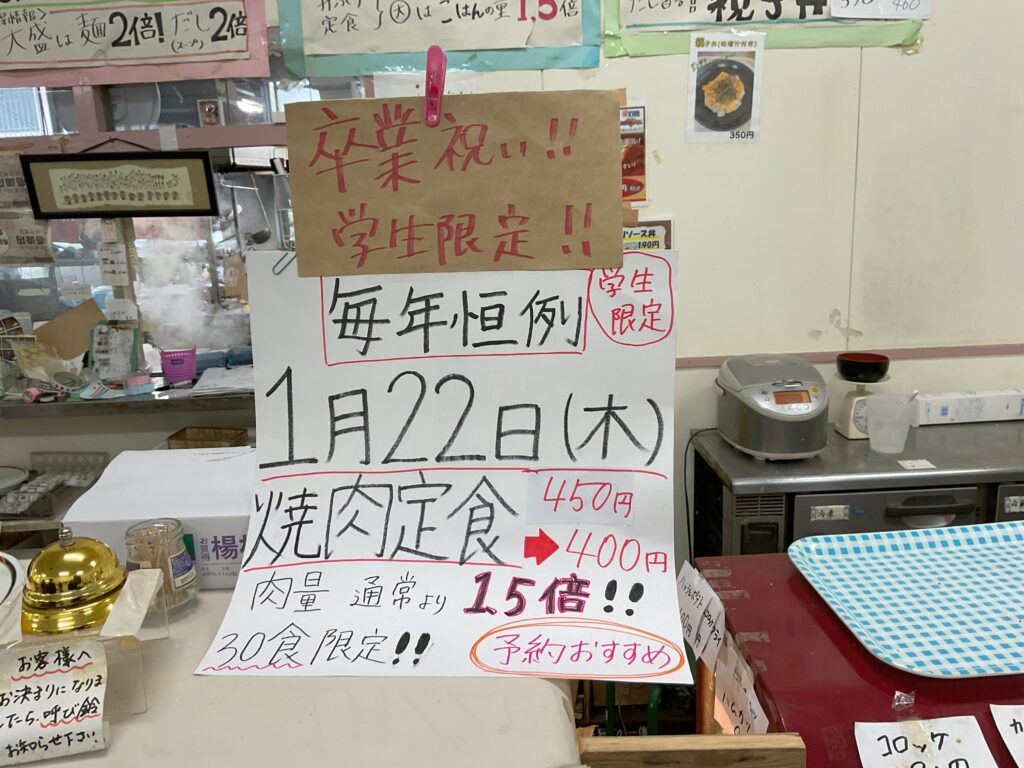 大盛は麺2倍!だし(スープ)2倍
定食 大はごはんの量1,5倍
親子丼
350円
卒業祝い!!
学生限定!!
ソース丼
190円
毎年恒例
学生
限定
1月22日(木)
焼肉定食 450円
400円
肉量 通常より 1.5倍!!
30食限定!!
予約おすすめ
お買得
お客様へ
お決まりになりま
したら、呼び鈴
お知らせ下さい
コロッケ